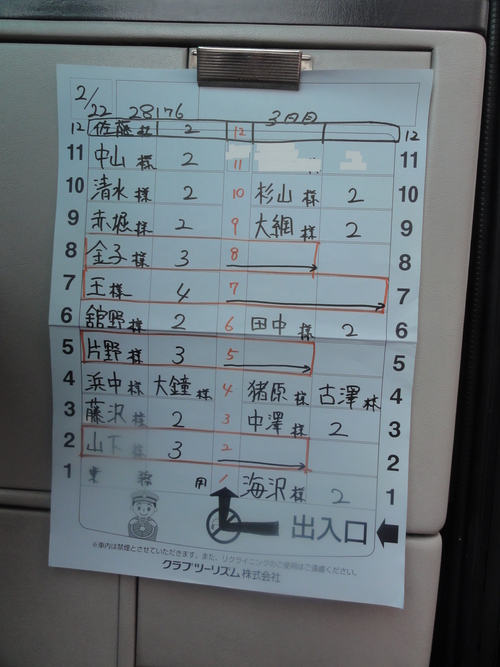 2/22 28176 3日目
12 佐藤様 2 12 12
11 中山様 2 11 11
10 清水様 2 10 杉山様 2 10
9 赤堀様 2 9 大綱様 2 9
8 金子様 3 8 8
7 王様 4 7 7
6 舘野様 2 6 田中様 2 6
5 片野様 3 5 5
4 浜中様 大鐘様 4 猪原様 古澤様 4
3 藤沢様 2 3 中澤様 2 3
2 山下様 3 2 2
1 業務用 1 海沢様 2 1
出入口
※車内は禁煙とさせていただきます。また、リクライニングのご使用はご遠慮ください。
クラブツーリズム株式会社